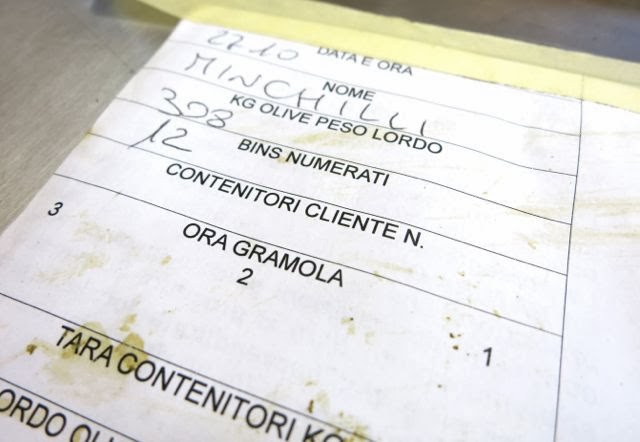 DATA E ORA
22.10
NOME
MINCHILLI
KG OLIVE PESO LORDO
398
BINS NUMERATI
12
CONTENITORI CLIENTE N.
ORA GRAMOLA
3 2 1
TARA CONTENITORI KG